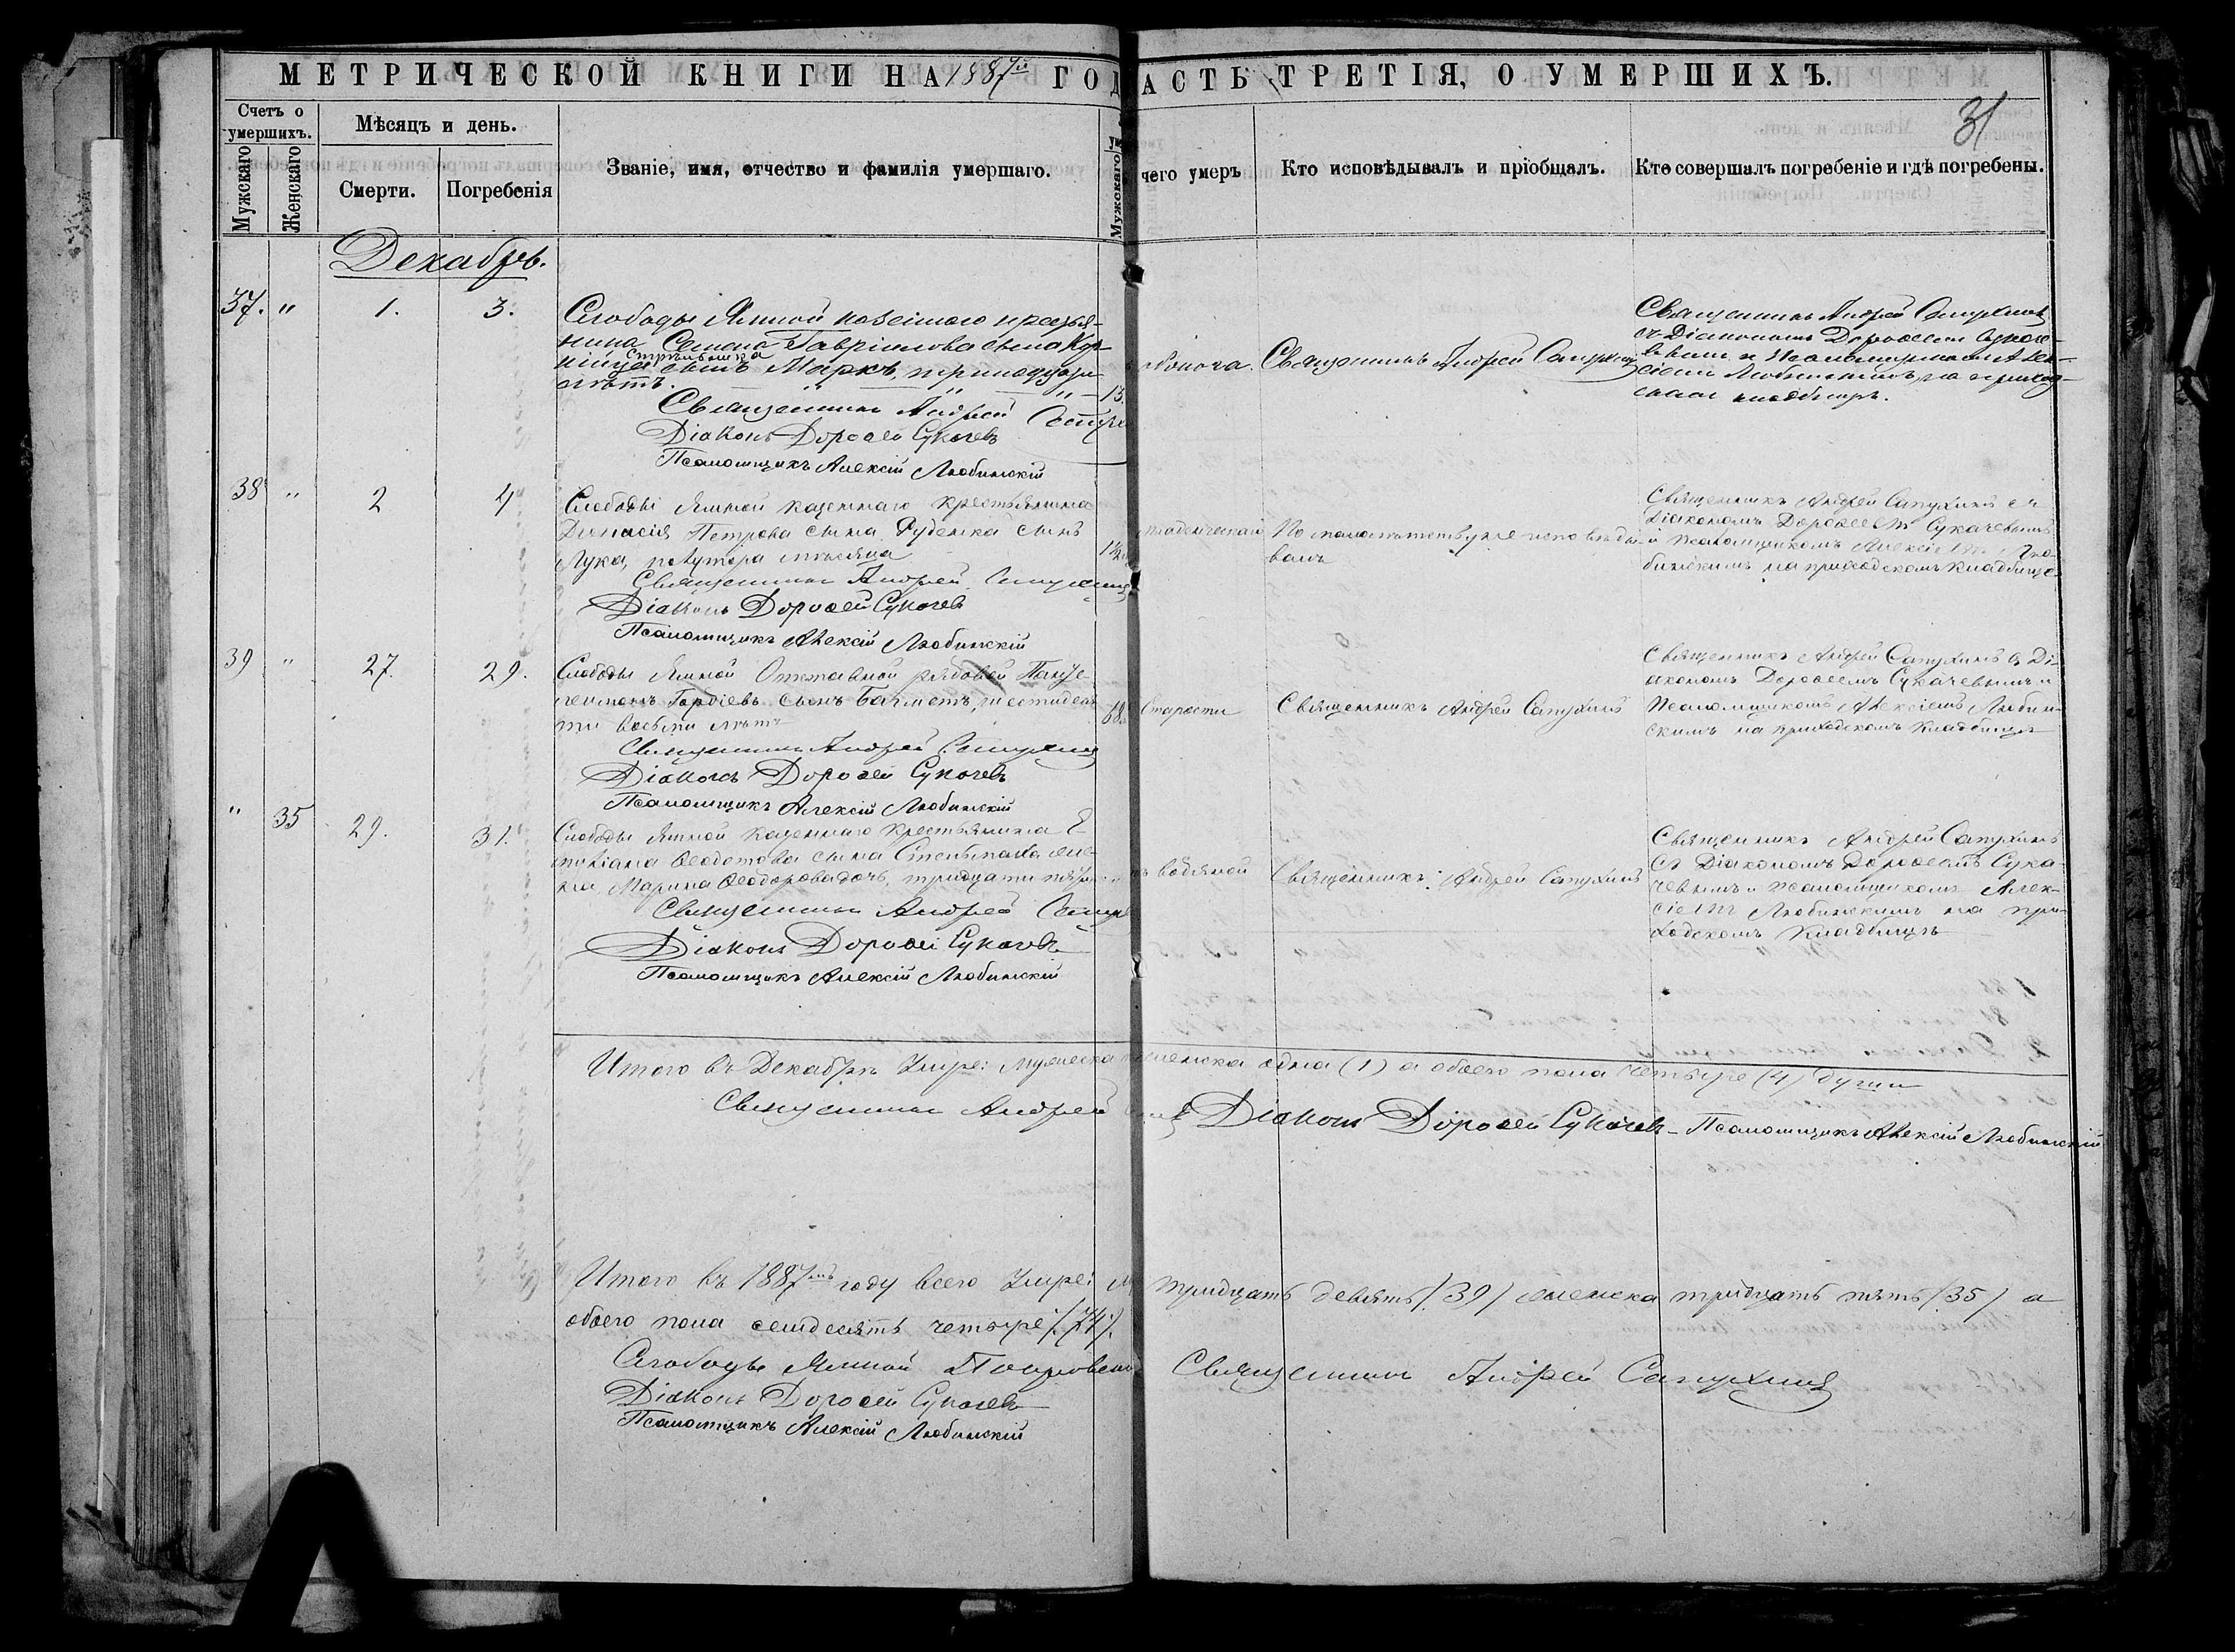 МЕТРИЧЕСКОЙ КНИГИ НА 1887й ГОД
АСТЬ ТРЕТІЯ, О УМЕРШИХЪ.
31
Счетъ о умершихъ.
Мужскаго
Женскаго
Мѣсяцъ и день.
Смерти.
Погребенія
Званіе, имя, отчество и фамилія умершаго.
Мужскаго
чего умеръ
Кто исповѣдывалъ и пріобщалъ.
Кто совершалъ погребеніе и гдѣ погребены.
Декабрь.
37. " 1. 3.
Слободы Ямной казеннаго крестья-
нина Семена Гавріилова сына
Стрѣльника
сынъ Маркъ, тринадцати
лѣтъ. " " 13.
Священникъ Андрей
Діаконъ Дорофей Сукачевъ
Псаломщикъ Алексій Любинскій
Священникъ Андрей Сапухинъ
Священникъ Андрей Сапухинъ
съ Діакономъ Дорофеемъ Сукаче-
вымъ и Псаломщикомъ Алек-
сіемъ Любинскимъ на приход-
скомъ кладбищѣ.
38 " 2 4
Слободы Ямной казеннаго крестьянина
Петрова сына Руденка сынъ
Лука, полутора мѣсяца
1½
Священникъ Андрей Сапухинъ
Діаконъ Дорофей Сукачевъ
Псаломщикъ Алексій Любинскій
младенческой
По малолѣтству не исповѣды-
ванъ
Священникъ Андрей Сапухинъ съ
Діакономъ Дорофеемъ Сукачевымъ
и Псаломщикомъ Алексіемъ Лю-
бинскимъ на приходскомъ кладбище
39 " 27. 29.
Слободы Ямной Отставной рядовой Панте-
леимонъ Гордіевъ сынъ Бахметъ, шестидеся-
ти восьми лѣтъ
68
Священникъ Андрей Сапухинъ
Діаконъ Дорофей Сукачевъ
Псаломщикъ Алексій Любинскій
Старости
Священникъ Андрей Сапухинъ
Священникъ Андрей Сапухинъ съ Ді-
акономъ Дорофеемъ Сукачевымъ и
Псаломщикомъ Алексіемъ Любин-
скимъ на приходскомъ Кладбищѣ
" 35 29. 31.
Слободы Ямной казеннаго крестьянина Е-
миліана Ѳеодотова сына жe-
на, Марина Ѳеодорова дочь, тридцати пяти
Священникъ Андрей
Діаконъ Дорофей Сукачевъ
Псаломщикъ Алексій Любинскій
водяной
Священникъ Андрей Сапухинъ
Священникъ Андрей Сапухинъ
съ Діакономъ Дорофеемъ Сука-
чевымъ и Псаломщикомъ Алек-
сіемъ Любинскимъ на при-
ходскомъ Кладбищѣ
Итого въ Декабрѣ Умре: мужеска женска одна (1) а обоего пола четыре (4) души
Священникъ Андрей Діаконъ Дорофей Сукачевъ - Псаломщикъ Алексій Любинскій
Итого въ 1887мъ году всего Умре: м тридцать девять (39) женска тридцать пять (35) а
обоего пола семдесятъ четыре (74).
Слободы Ямной Покровской Священникъ Андрей Сапухинъ
Діаконъ Дорофей Сукачевъ
Псаломщикъ Алексій Любинскій